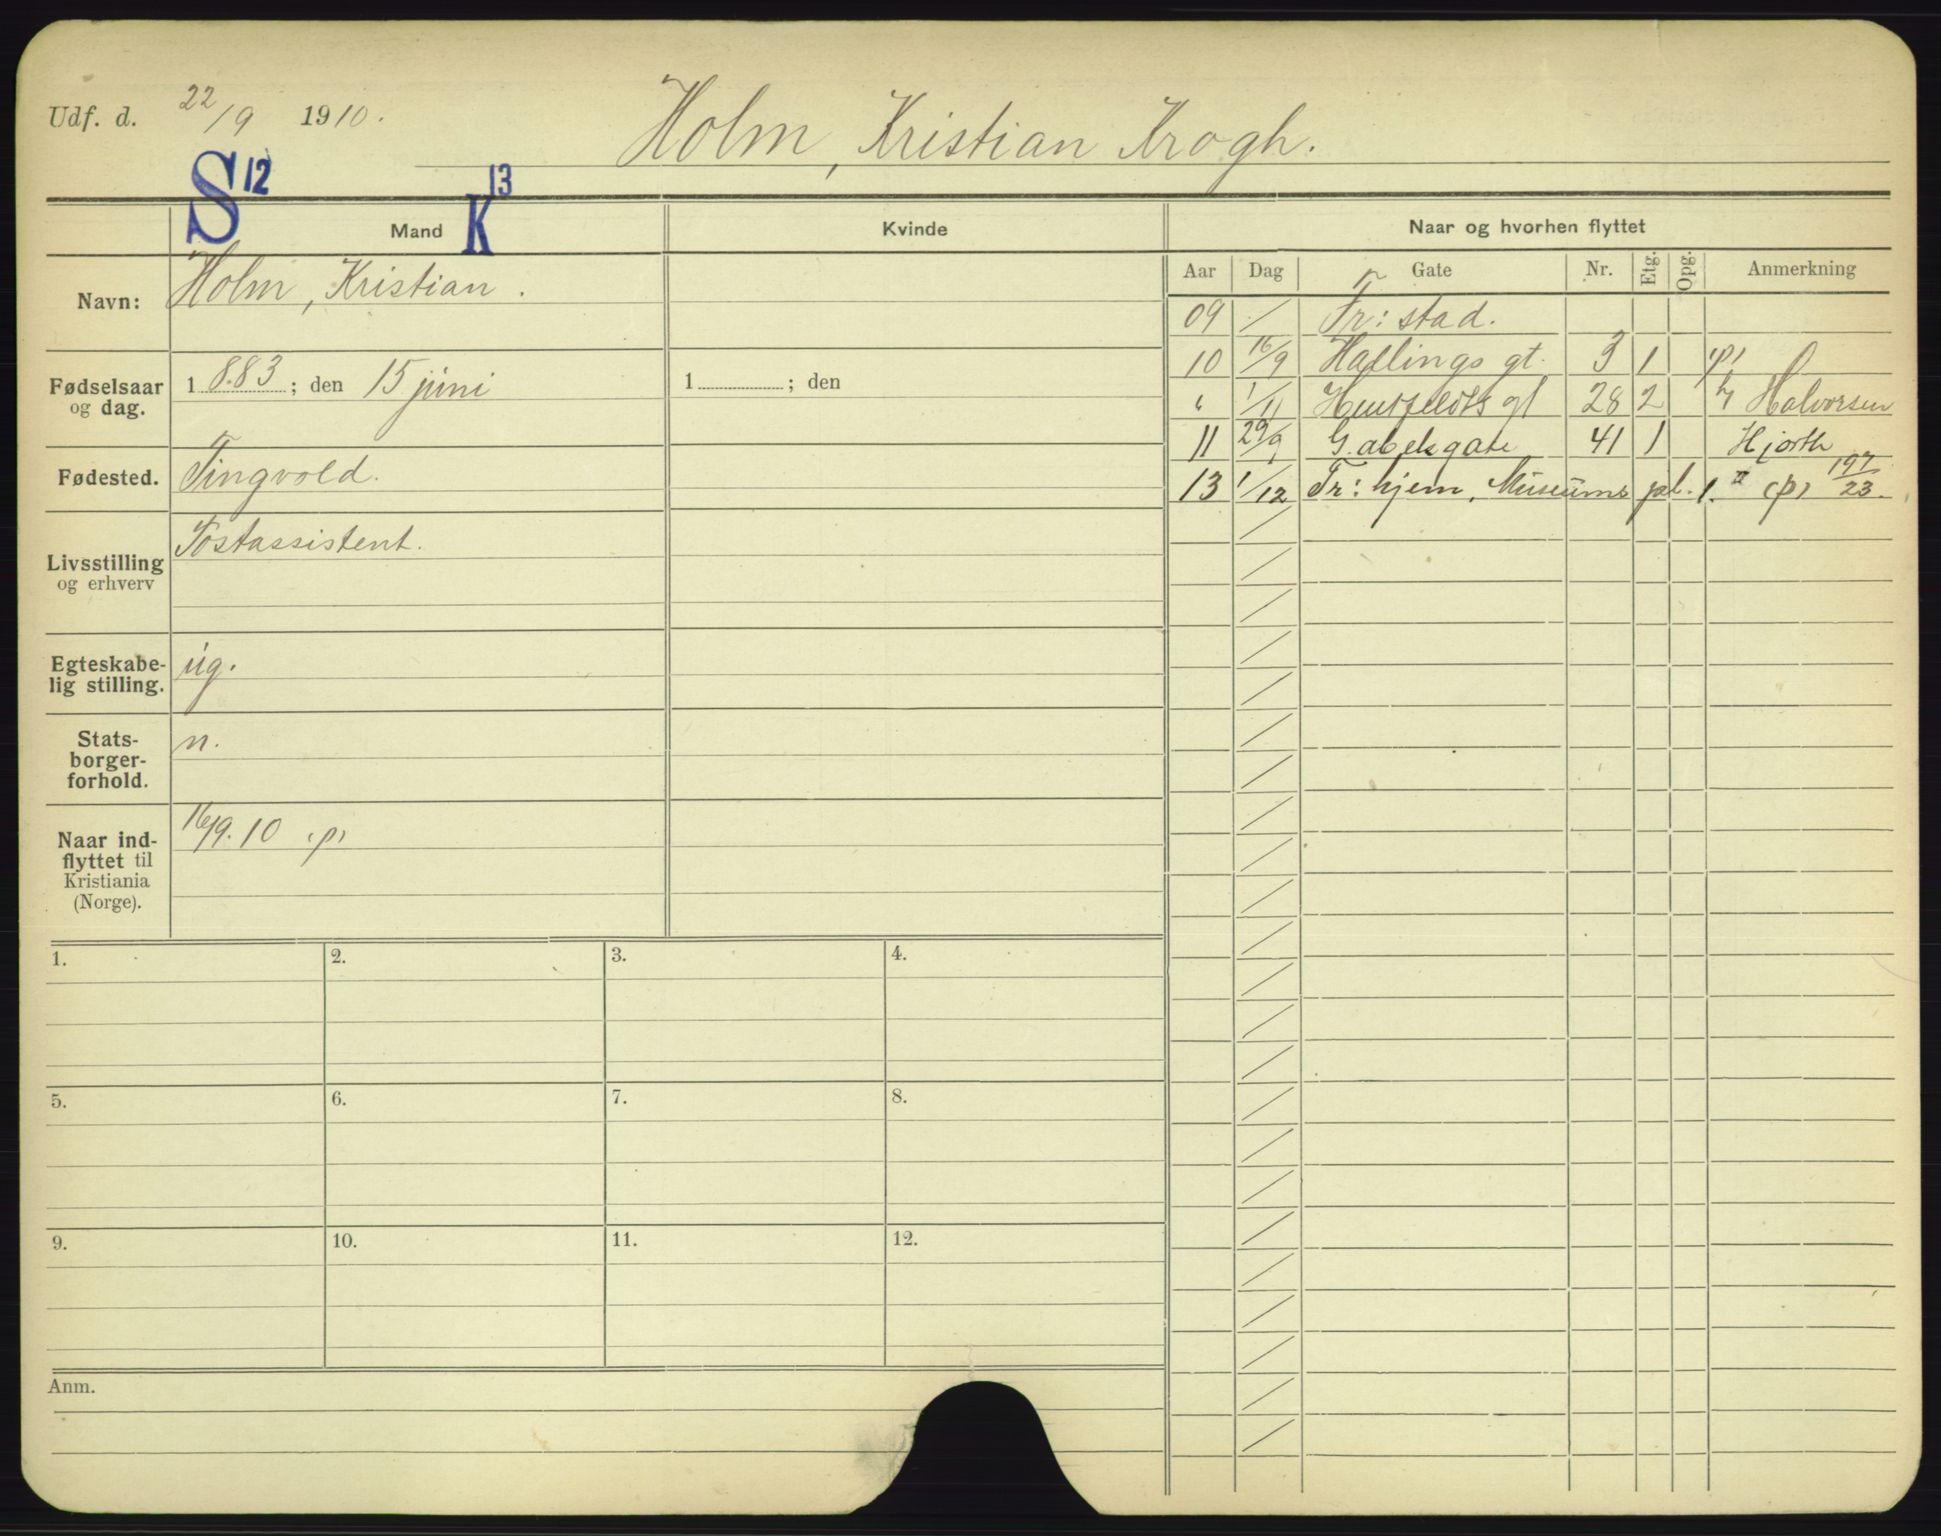 Udf. d. 22/9 1910.
Holm, Kristian Krogh.
S 12
K 13
Mand
Kvinde
Naar og hvorhen flyttet
Navn: Holm, Kristian.
Aar Dag Gate Nr. Etg. Opg. Anmerkning
09 / Fr: stad.
10 16/9 Hallings gt. 3 1 (p)
" 1/11 Huitfeldts gt 28 2 h/ Halvorsen
11 29/9 Gabelsgate 41 1 Hjorth
13 1/12 Fr: hjem, Museums pl. 1. II (p) 197/23.
Fødselsaar og dag. 1 8.83 ; den 15 juni
1 ; den
Fødested. Tingvold.
Livsstilling og erhverv Postassistent.
Egteskabe-
lig stilling. ug.
Stats-
borger-
forhold. n.
Naar ind-
flyttet til
Kristiania
(Norge). 16/9.10 (p)
1. 2. 3. 4.
5. 6. 7. 8.
9. 10. 11. 12.
Anm.